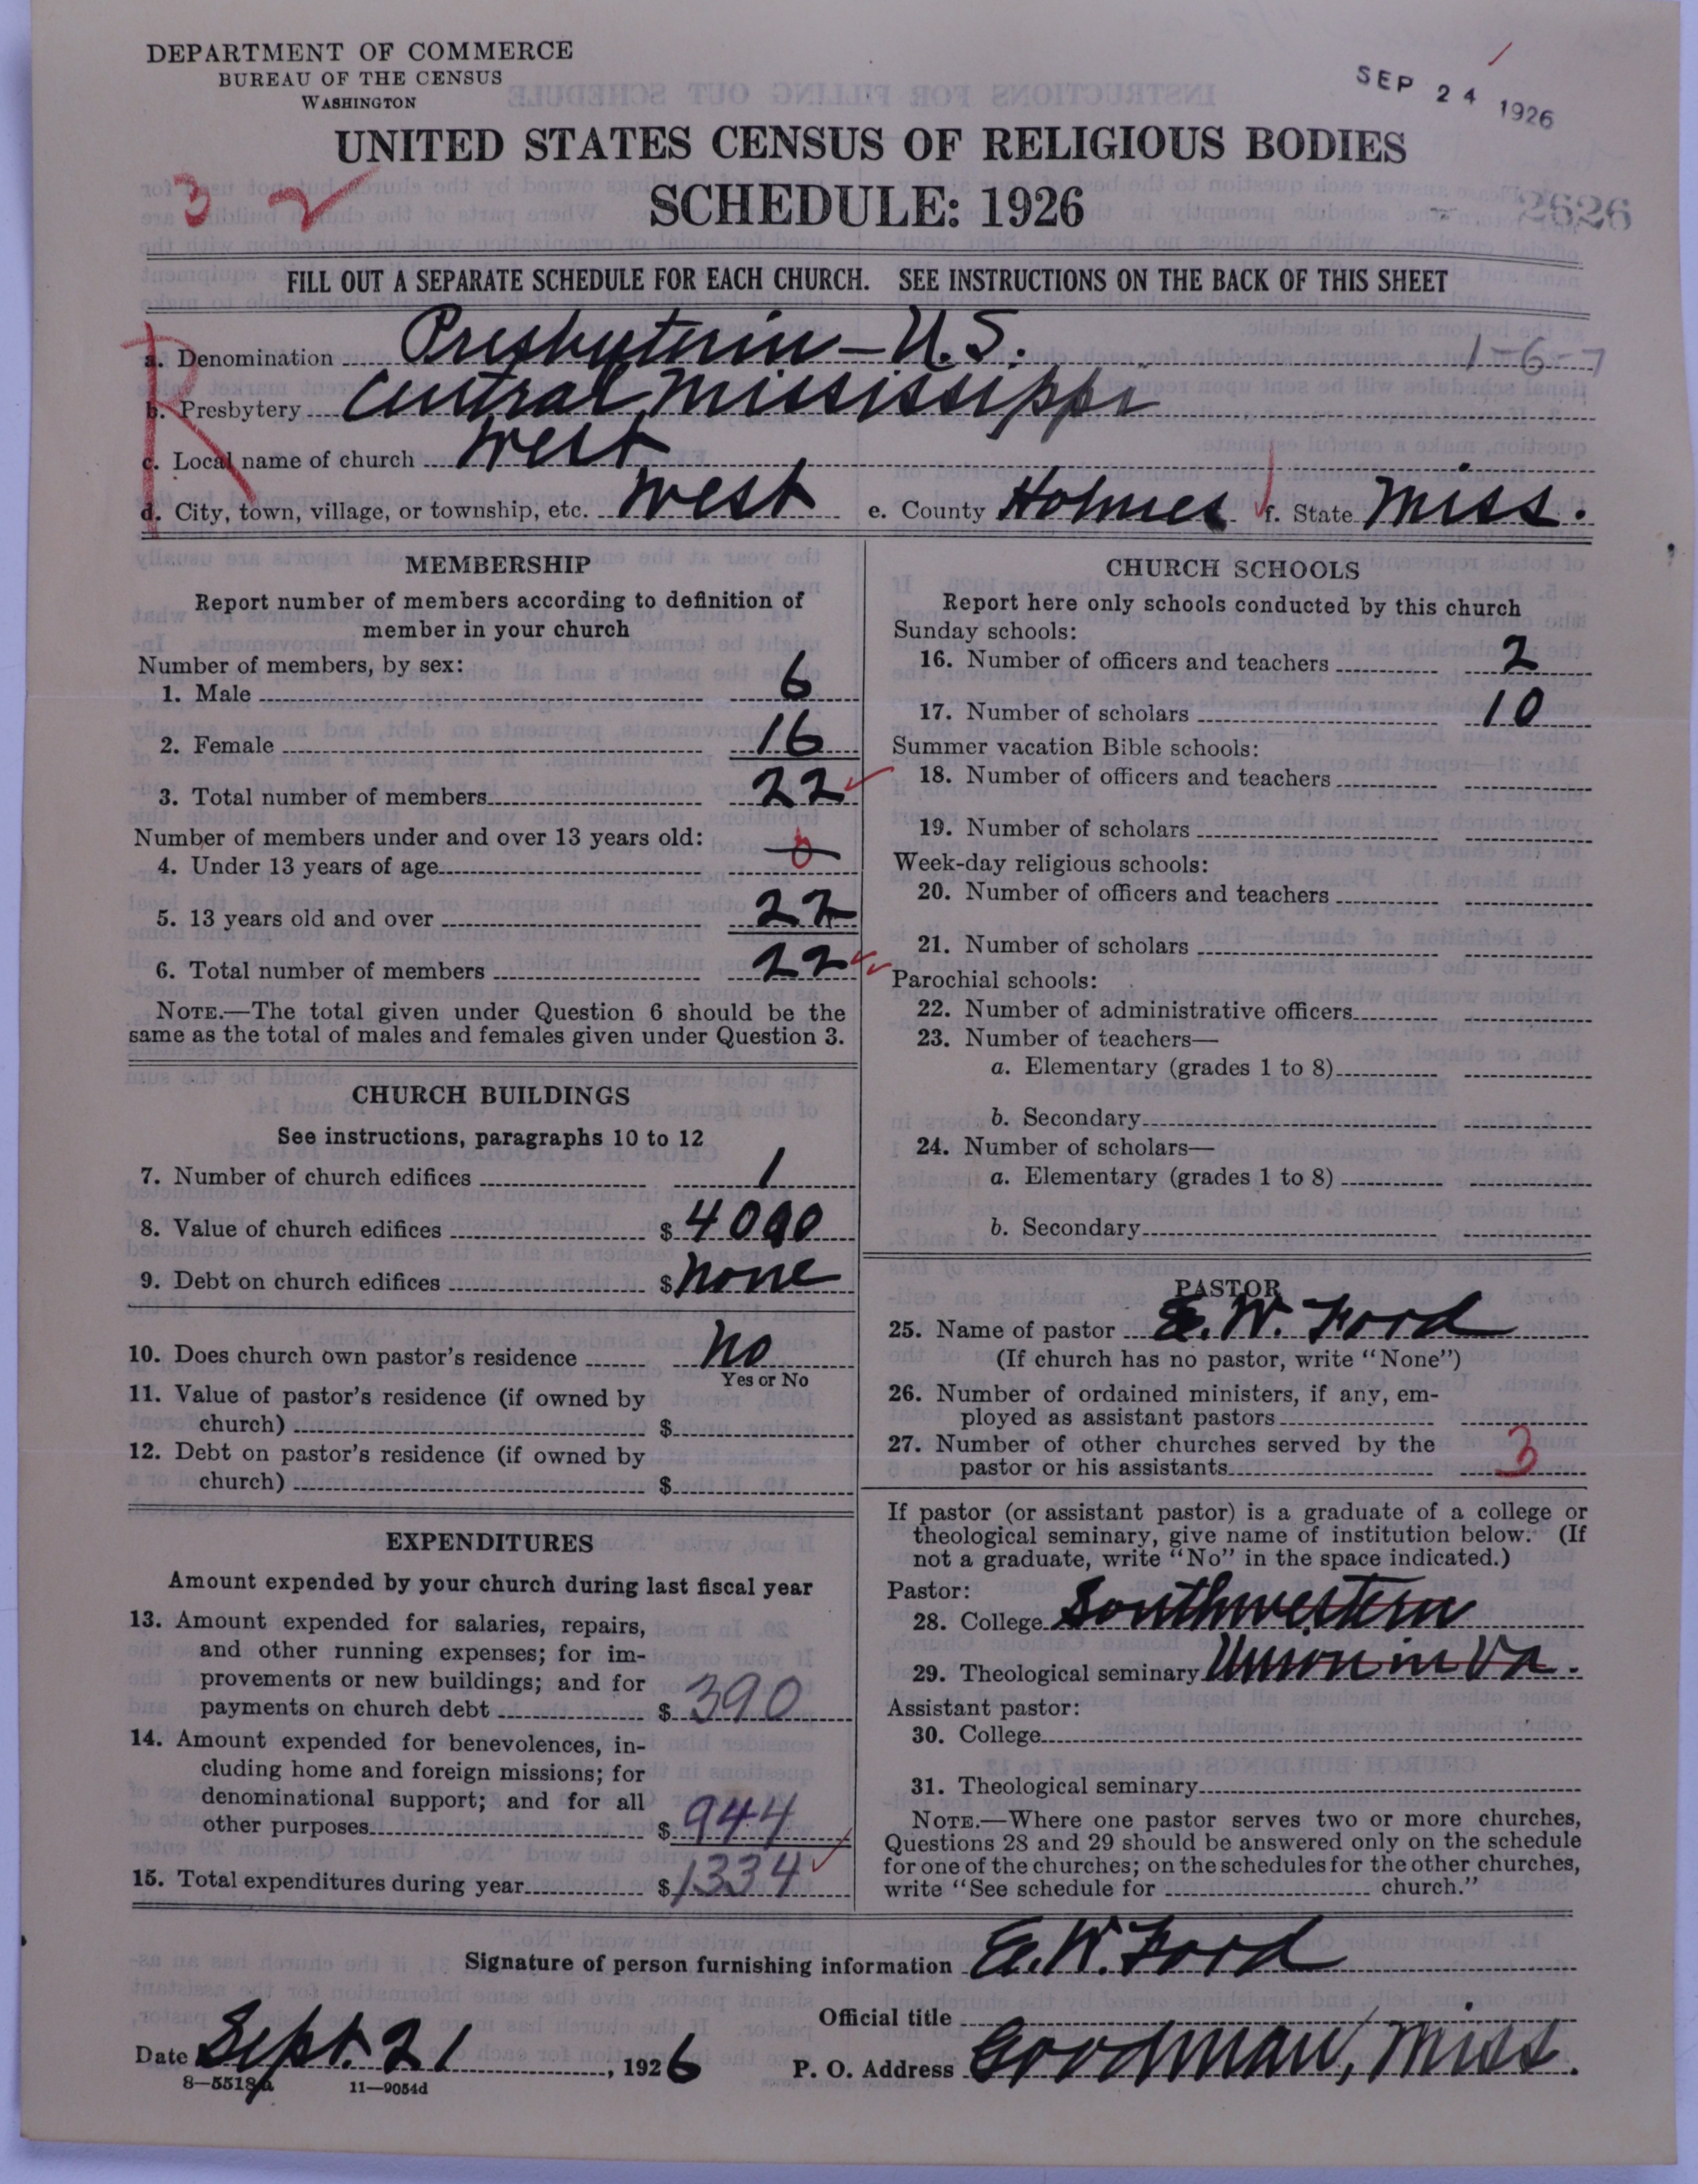 DEPARTMENT OF COMMERCE
BUREAU OF THE CENSUS
WASHINGTON
SEP 24 1926
UNITED STATES CENSUS OF RELIGIOUS BODIES
3 2
SCHEDULE: 1926
2626
FILL OUT A SEPARATE SCHEDULE FOR EACH CHURCH. SEE INSTRUCTIONS ON THE BACK OF THIS SHEET
R
a. Denomination Presbyterin - U.S. 1-6-7
b. Presbytery Central Mississippi
c. Local name of church West
d. City, town, village, or township, etc. West e. County Holmes f. State Miss.
MEMBERSHIP
Report number of members according to definition of
member in your church
Number of members, by sex:
1. Male 6
2. Female 16
3. Total number of members 22
Number of members under and over 13 years old:
4. Under 13 years of age 0
5. 13 years old and over 22
6. Total number of members 22
NOTE.—The total given under Question 6 should be the
same as the total of males and females given under Question 3.
CHURCH BUILDINGS
See instructions, paragraphs 10 to 12
7. Number of church edifices 1
8. Value of church edifices $ 4000
9. Debt on church edifices $ none
10. Does church own pastor's residence no
Yes or No
11. Value of pastor's residence (if owned by
church) $
12. Debt on pastor's residence (if owned by
church) $
EXPENDITURES
Amount expended by your church during last fiscal year
13. Amount expended for salaries, repairs,
and other running expenses; for im-
provements or new buildings; and for
payments on church debt $ 390
14. Amount expended for benevolences, in-
cluding home and foreign missions; for
denominational support; and for all
other purposes $ 944
15. Total expenditures during year $ 1334
CHURCH SCHOOLS
Report here only schools conducted by this church
Sunday schools:
16. Number of officers and teachers 2
17. Number of scholars 10
Summer vacation Bible schools:
18. Number of officers and teachers
19. Number of scholars
Week-day religious schools:
20. Number of officers and teachers
21. Number of scholars
Parochial schools:
22. Number of administrative officers
23. Number of teachers—
a. Elementary (grades 1 to 8)
b. Secondary
24. Number of scholars—
a. Elementary (grades 1 to 8)
b. Secondary
PASTOR
25. Name of pastor E. W. Ford
(If church has no pastor, write "None")
26. Number of ordained ministers, if any, em-
ployed as assistant pastors
27. Number of other churches served by the
pastor or his assistants 3
If pastor (or assistant pastor) is a graduate of a college or
theological seminary, give name of institution below. (If
not a graduate, write "No" in the space indicated.)
Pastor:
28. College Southwestern
29. Theological seminary Union in Va.
Assistant pastor:
30. College
31. Theological seminary
NOTE.—Where one pastor serves two or more churches,
Questions 28 and 29 should be answered only on the schedule
for one of the churches; on the schedules for the other churches,
write "See schedule for church."
Signature of person furnishing information E. W. Ford
Official title
Date Sept. 21, 1926 P. O. Address Goodman, Miss.
8—5518a 11—9054d